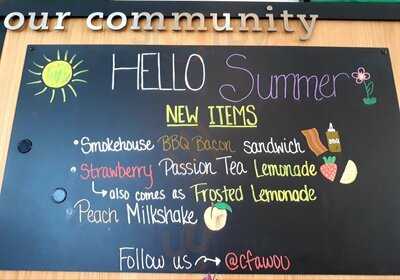 our community
HELLO Summer
NEW ITEMS
• Smokehouse BBQ Bacon sandwich
• Strawberry Passion Tea Lemonade
↳ also comes as Frosted Lemonade
Peach Milkshake
Follow us → @cfawou